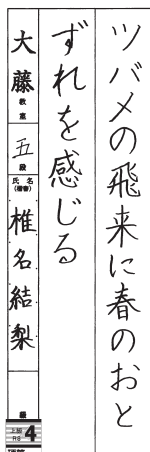 ツバメの飛来に春のおと
ずれを感じる
大藤教室
五段
氏名(楷書)
椎名結梨
4